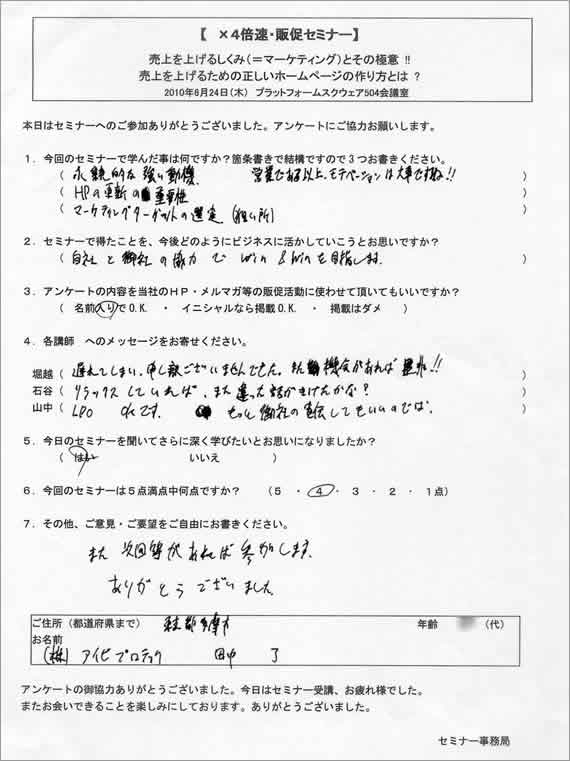 【　×４倍速・販促セミナー】
売上を上げるしくみ（＝マーケティング）とその極意 !!
売上を上げるための正しいホームページの作り方とは ?
2010年6月24日（木）　プラットフォームスクウェア504会議室
本日はセミナーへのご参加ありがとうございました。アンケートにご協力お願いします。
１．今回のセミナーで学んだ事は何ですか？箇条書きで結構ですので３つお書きください。
（ 永続的な強い動機　営業である以上、モチベーションは大事ですね!! ）
（ HPの更新の重要性 ）
（ マーケティングターゲットの選定（狙い所） ）
２．セミナーで得たことを、今後どのようにビジネスに活かしていこうとお思いですか？
（ 自社と御社の協力で win & winを目指します。 ）
３．アンケートの内容を当社のＨＰ・メルマガ等の販促活動に使わせて頂いてもいいですか？
（　名前入りでO.K.　・　イニシャルなら掲載O.K.　・　掲載はダメ　）
４．各講師　へのメッセージをお寄せください。
堀越（ 遅れてしまい、申し訳ございませんでした。また機会があれば是非!! ）
石谷（ リラックスしていれば、また違った話がきけたかな? ）
山中（ LPO okです。もっと御社の宣伝してもいいのでは。 ）
５．今日のセミナーを聞いてさらに深く学びたいとお思いになりましたか？
（　はい　　いいえ　）
６．今回のセミナーは５点満点中何点ですか？　（５　・　４　・　３　・　２　・　１点）
７．その他、ご意見・ご要望をご自由にお書きください。
また次回等があれば参加します。
ありがとうございました。
ご住所（都道府県まで）　多摩市　年齢　（代）
お名前
(株) アイビプロテック　田中　了
アンケートの御協力ありがとうございました。今日はセミナー受講、お疲れ様でした。
またお会いできることを楽しみにしております。ありがとうございました。
セミナー事務局